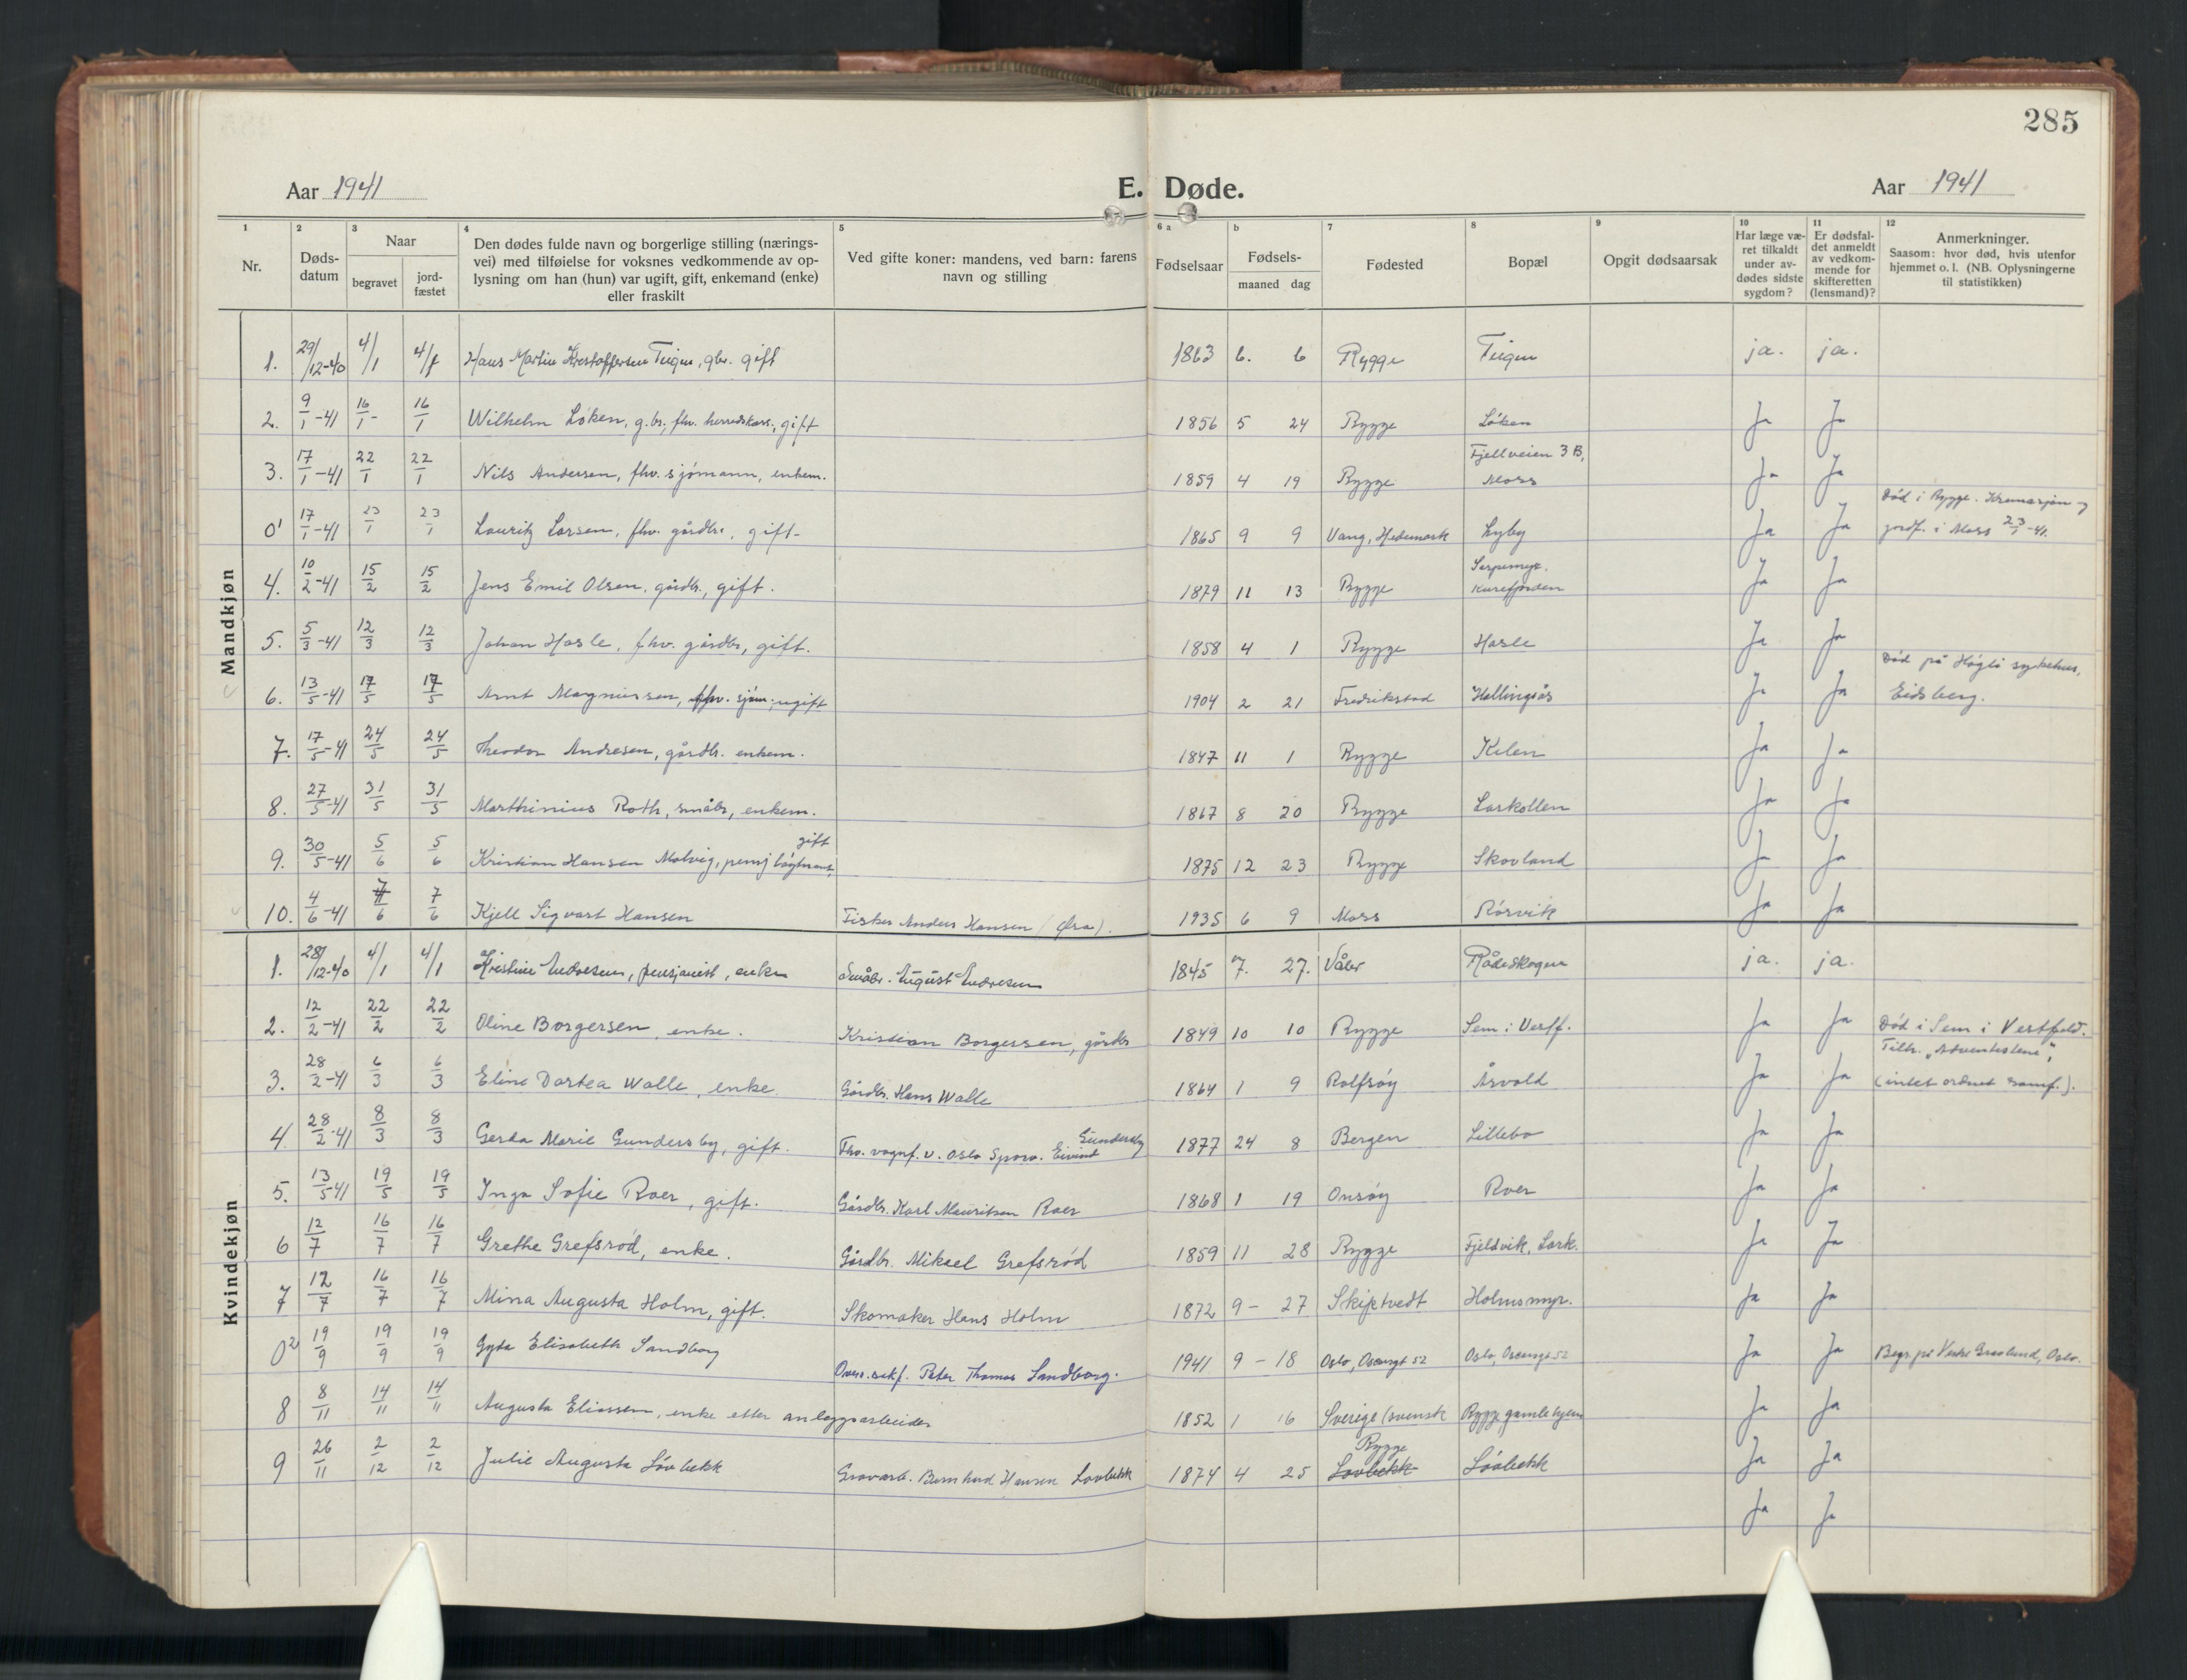 285
Aar 1941
E. Døde.
Aar 1941
1 2 3 4 5 6 a b 7 8 9 10 11 12
Nr.
Døds-
datum
Naar
begravet
jord-
fæstet
Den dødes fulde navn og borgerlige stilling (nærings-
vei) med tilføielse for voksnes vedkommende av op-
lysning om han (hun) var ugift, gift, enkemand (enke)
eller fraskilt
Ved gifte koner: mandens, ved barn: farens
navn og stilling
Fødselsaar
Fødsels-
maaned dag
Fødested
Bopæl
Opgit dødsaarsak
Har læge væ-
ret tilkaldt
under av-
dødes sidste
sygdom?
Er dødsfal-
det anmeldt
av vedkom-
mende for
skifteretten
(lensmand)?
Anmerkninger.
Saasom: hvor død, hvis utenfor
hjemmet o. l. (NB. Oplysningerne
til statistikken)
Mandkjøn
1. 29/12-40 4/1 4/1 Hans Martin Kristoffersen Teigen, gbr. gift 1863 6. 6 Rygge Teigen ja. ja.
2. 9/1-41 16/1- 16/1 Wilhelm Løken, g.br., fhv. herredskass., gift 1856 5 24 Rygge Løken Ja Ja
3. 17/1-41 22/1 22/1 Nils Andersen, fhv. sjømann, enkem. 1859 4 19 Rygge Fjellveien 3 B, Moss Ja Ja
0¹ 17/1-41 23/1 23/1 Lauritz Larsen, fhv. gårdbr., gift- 1865 9 9 Vang, Hedemark Lyby Ja Ja Død i Rygge. Kremasjon og
jordf. i Moss 23/1-41.
4. 10/2-41 15/2 15/2 Jens Emil Olsen, gårdbr., gift. 1879 11 13 Rygge Kurefjorden Ja Ja
5. 5/3-41 12/3 12/3 Johan Hasle, fhv. gårdbr, gift. 1858 4 1 Rygge Hasle Ja Ja
6. 13/5-41 17/5 17/5 Arnt Magnussen, fhv. sjøm., ugift 1904 2 21 Fredrikstad Hallingsås Ja Ja Død på Høgli sykehus,
Eidsberg.
7. 17/5-41 24/5 24/5 Theodor Andresen, gårdbr. enkem. 1847 11 1 Rygge Kilen Ja Ja
8. 27/5-41 31/5 31/5 Marthinius Roth, småbr, enkem. 1867 8 20 Rygge Larkollen Ja Ja
9. 30/5-41 5/6 5/6 Kristian Hansen Molvig, pensj løytnant, gift 1875 12 23 Rygge Skovland Ja Ja
10. 4/6-41 7/6 7/6 Kjell Sigvart Hansen Fisker Anders Hansen (Øra). 1935 6 9 Moss Rørvik Ja Ja
Kvindekjøn
1. 28/12-40 4/1 4/1 Kristine Andresen, pensjonist, enke Småbr. August Andresen 1845 7. 27. Våler Rådeskogen ja. ja.
2. 12/2-41 22/2 22/2 Oline Borgersen, enke. Kristian Borgersen, gårdbr 1849 10 10 Rygge Sem i Vestf. Ja Ja Død i Sem i Vestfold.
Tilh. "Adventistene",
3. 28/2-41 6/3 6/3 Eline Dortea Walle, enke. Gårdbr. Hans Walle 1864 1 9 Rolfsøy Årvold Ja Ja (intet ordnet samf.).
4. 28/2-41 8/3 8/3 Gerda Marie Gundersby, gift. Fhv. vognf. v. Oslo Sporv. Eivind Gundersby 1877 24 8 Bergen Lillebo Ja Ja
5. 13/5-41 19/5 19/5 Inga Sofie Roer, gift. Gårdbr. Karl Mauritsen Roer 1868 1 19 Onsøy Roer Ja Ja
6 12/7 16/7 16/7 Grethe Grefsrød, enke. Gårdbr. Mikael Grefsrød 1859 11 28 Rygge Fjeldvik, Lark. Ja Ja
7 12/7 16/7 16/7 Mina Augusta Holm, gift. Skomaker Hans Holm 1872 9 - 27 Skiptvedt Holmsmyr. Ja Ja
0² 19/9 19/9 19/9 Gyda Elisabeth Sandborg Overs.sekf. Peter Thomas Sandborg. 1941 9 - 18 Oslo, Oscarsgt 52 Oslo, Oscarsgt 52 Ja Ja Begr. på Vestre Gravlund, Oslo.
8 8/11 14/11 14/11 Augusta Eliassen, enke etter anleggsarbeider 1852 1 16 Sverige (svensk Rygge gamlehjem Ja Ja
9 26/11 2/12 2/12 Julie Augusta Løvbekk Gravarb. Bernhard Hansen Løvbekk 1874 4 25 Rygge Løvbekk Løvbekk Ja Ja
Ja Ja